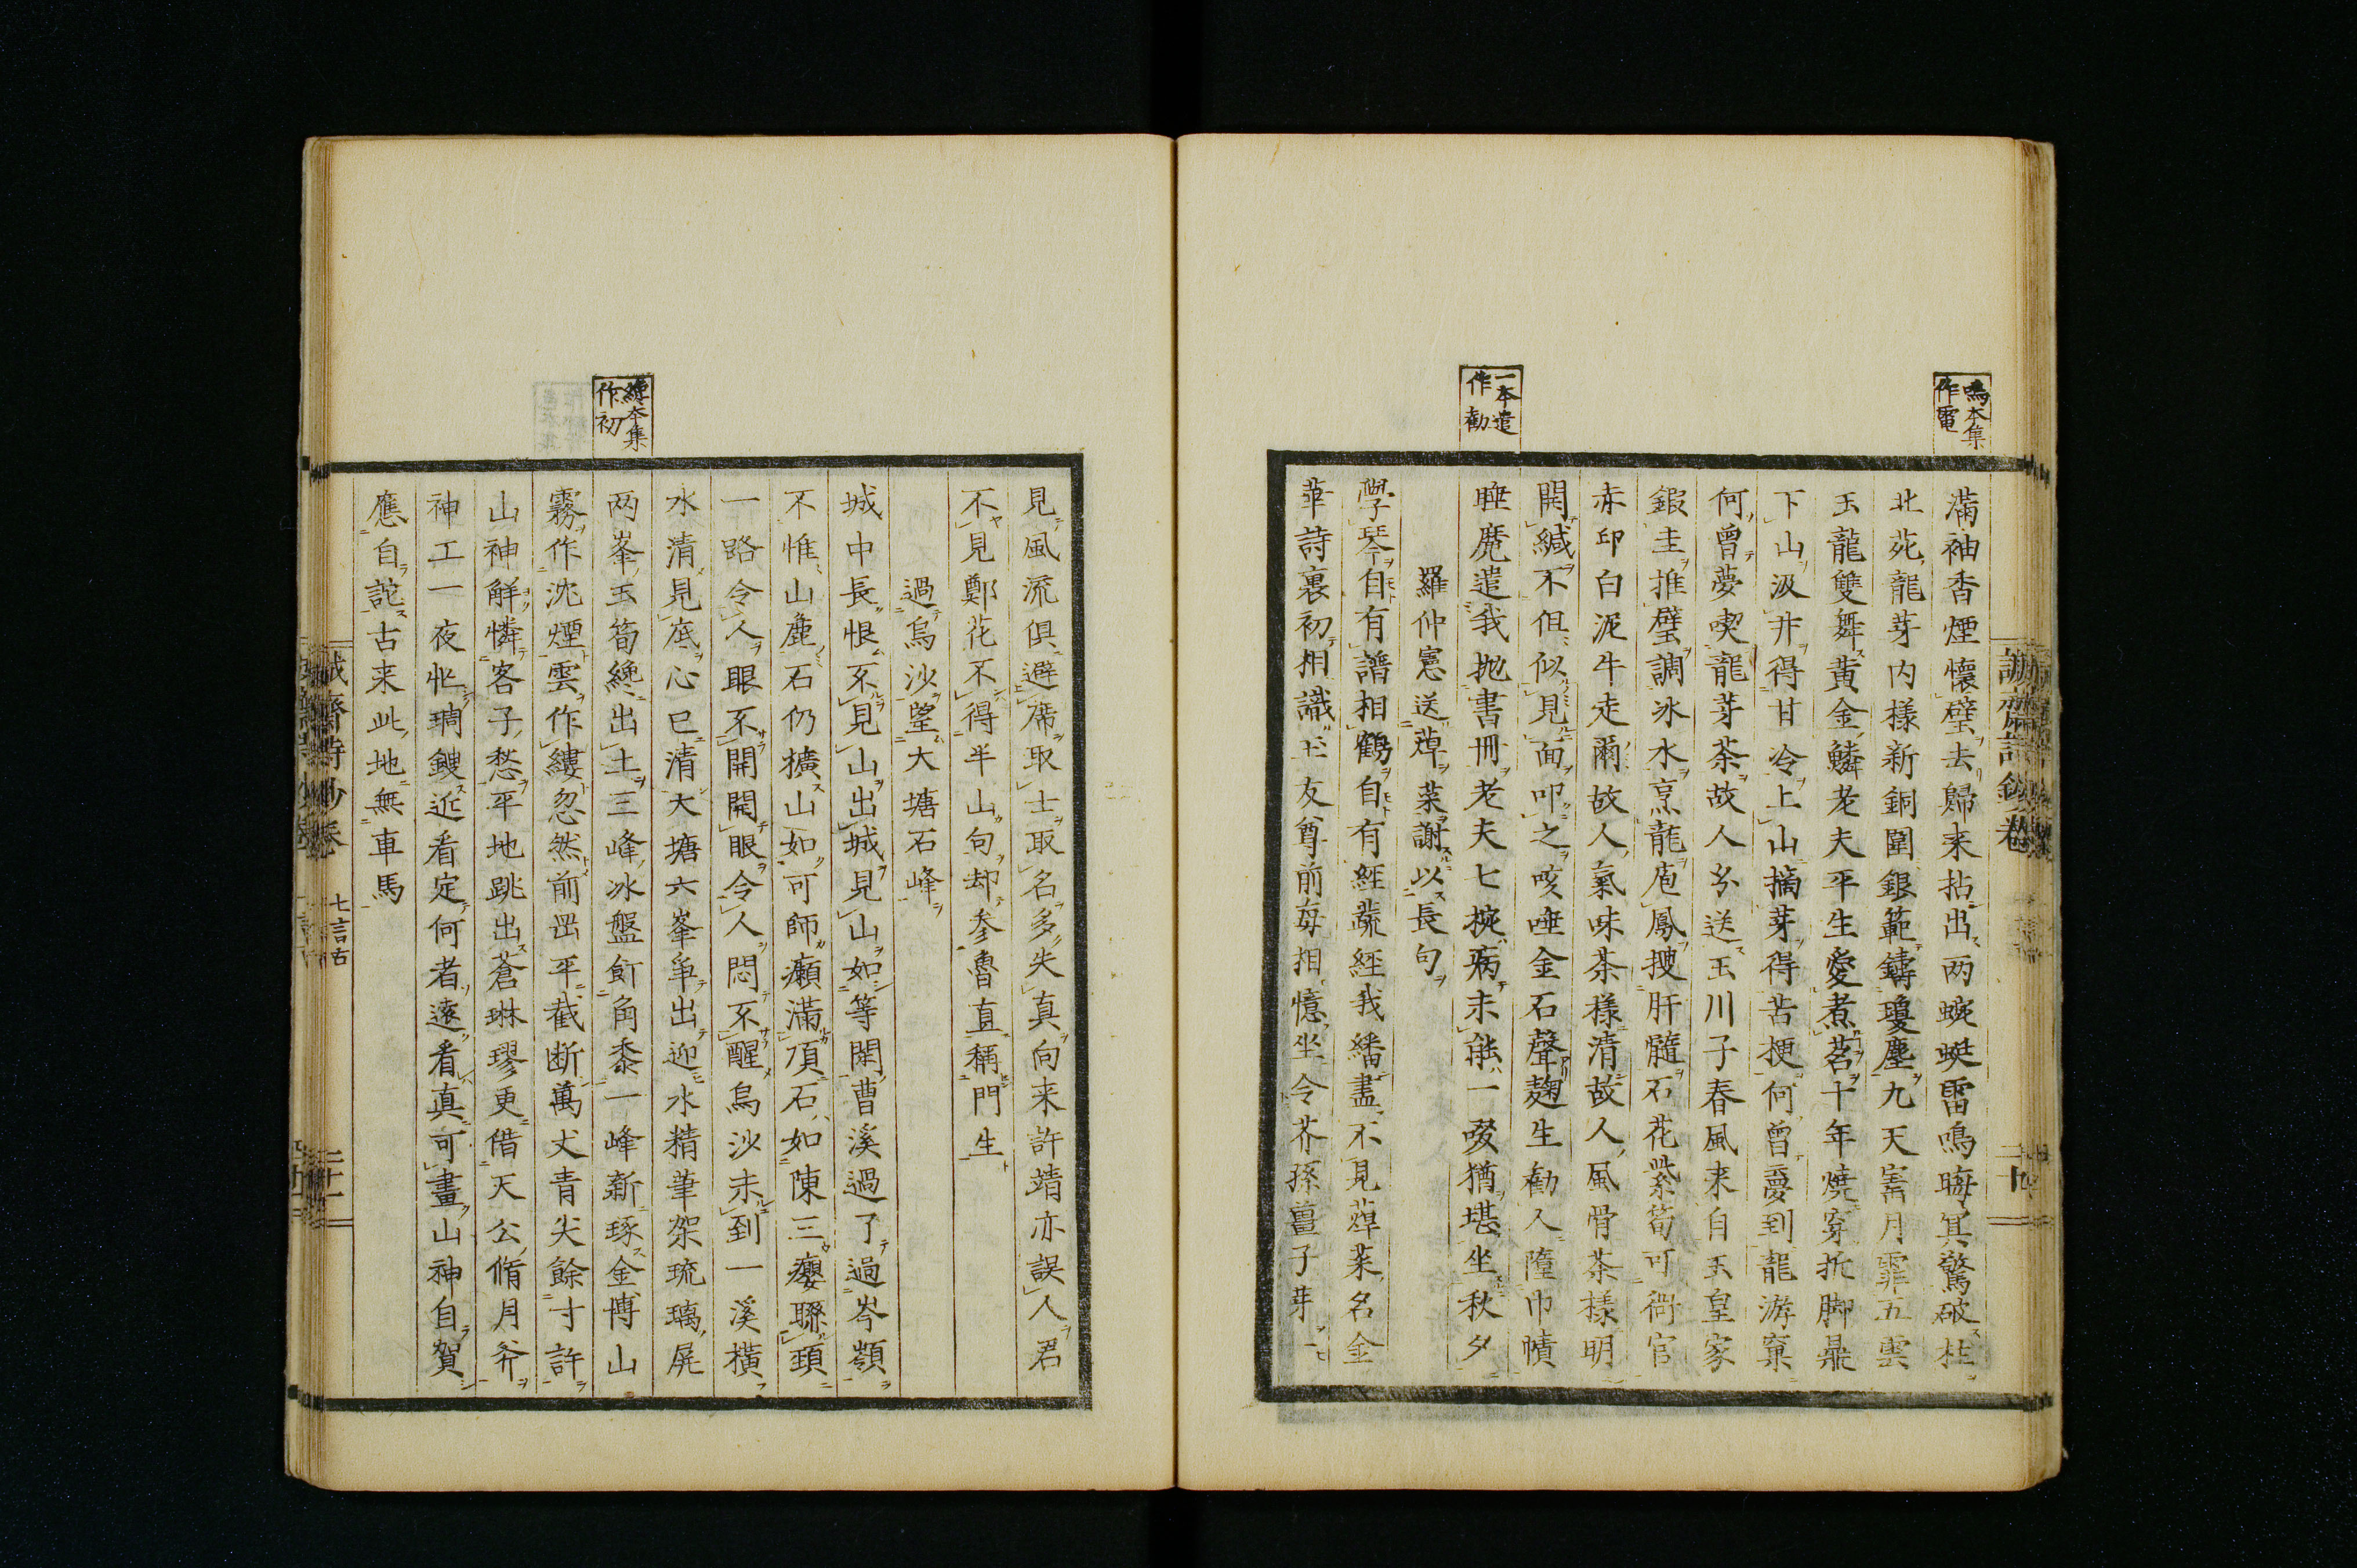 鳴本集
作電
滿袖香煙懷璧去歸来拈出两蜿蜒雷鳴晦冥驚破柱
北苑龍芽内樣新銅圍銀範鑄瓊塵九天寒月霏五雲
玉龍雙舞黃金鱗老夫平生愛煮茗十年燒穿折脚鼎
下山汲井得甘冷上山摘芽得苦梗何曾夢到龍游窠
何曾夢喫龍芽茶故人分送玉川子春風来自玉皇家
鍜圭推璧調冰水烹龍庖鳳搜肝髓石花紫筍可衙官
赤印白泥牛走爾故人氣味茶樣清故人風骨茶樣明
開緘不但似見面叩之咳唾金石聲麹生勸人墮巾幘
一本遣
作勸
睡魔遣我抛書冊老夫七椀病未能一啜猶堪坐秋夕
羅仲憲送䔖菜謝以長句
學琴自有譜相鶴自有經蔬經我繙盡不見䔖菜名金
華詩裏初相識玉友尊前每相憶坐令芥孫薑子芽一
誠齋詩鈔卷
二十
見風流俱避席取士取名多失真向来許靖亦誤人君
不見鄭花不得半山句却參魯直稱門生
過烏沙望大塘石峰
城中長恨不見山出城見山如等閑曹溪過了過岑嶺
不惟山麄石仍獷山如可師癩滿頂石如陳三癭聯頸
一路令人眼不開開眼令人悶不醒烏沙未到一溪橫
水清見底心已清大塘六峯爭出迎水精筆架琉璃屏
纔本集
作初
两峯玉筍纔出土三峰冰盤飣角黍一峰新琢金博山
霧作沈煙雲作縷忽然前峀平截断萬丈青尖餘寸許
山神解憐客子愁平地跳出蒼琳璆更借天公脩月斧
神工一夜忙琱鎪近看定何者遠看真可畫山神自賀
應自詫古来此地無車馬
誠齋詩鈔卷
七言古
二十一